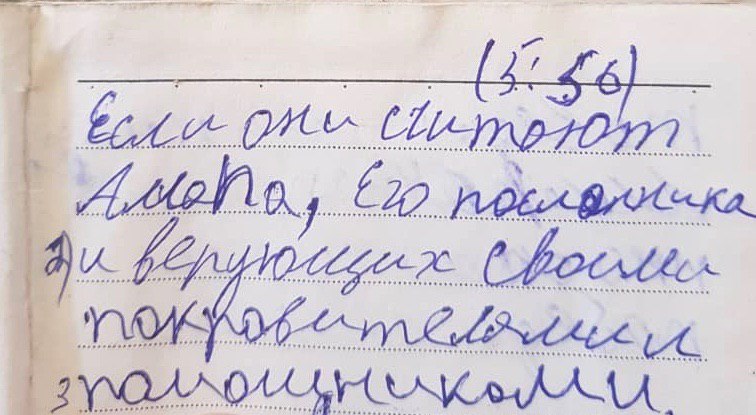 (5:56)
Если они считают
Аллаhа, Его посланника
2) и верующих своими
покровителями и
3 помощниками.